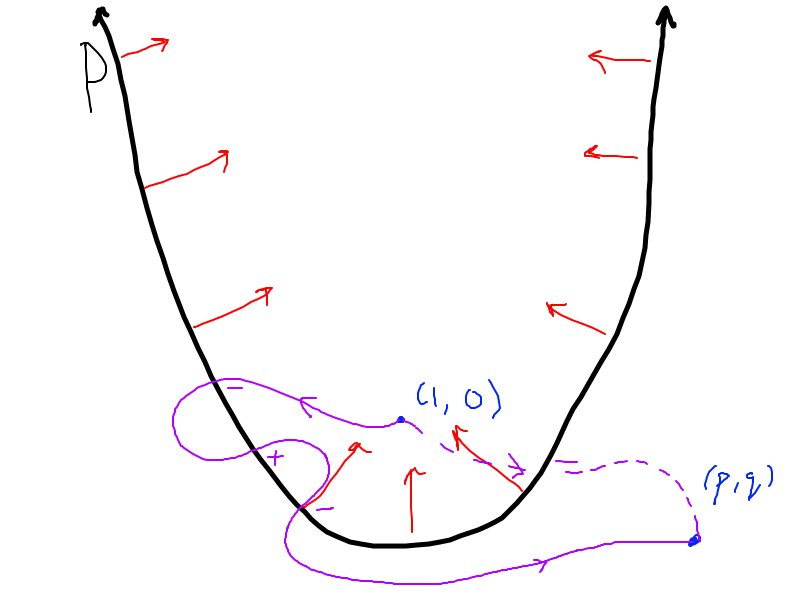 P
(1, 0)
−
+
(p, q)
−
−